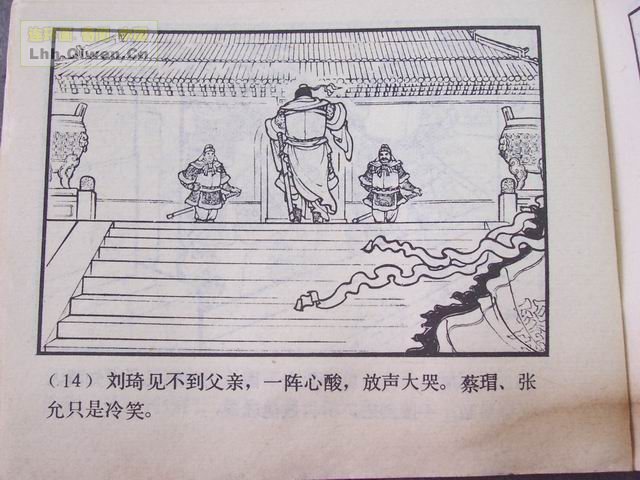 Lhh.Qiwen.Cn
(14) 刘琦见不到父亲，一阵心酸，放声大哭。蔡瑁、张
允只是冷笑。